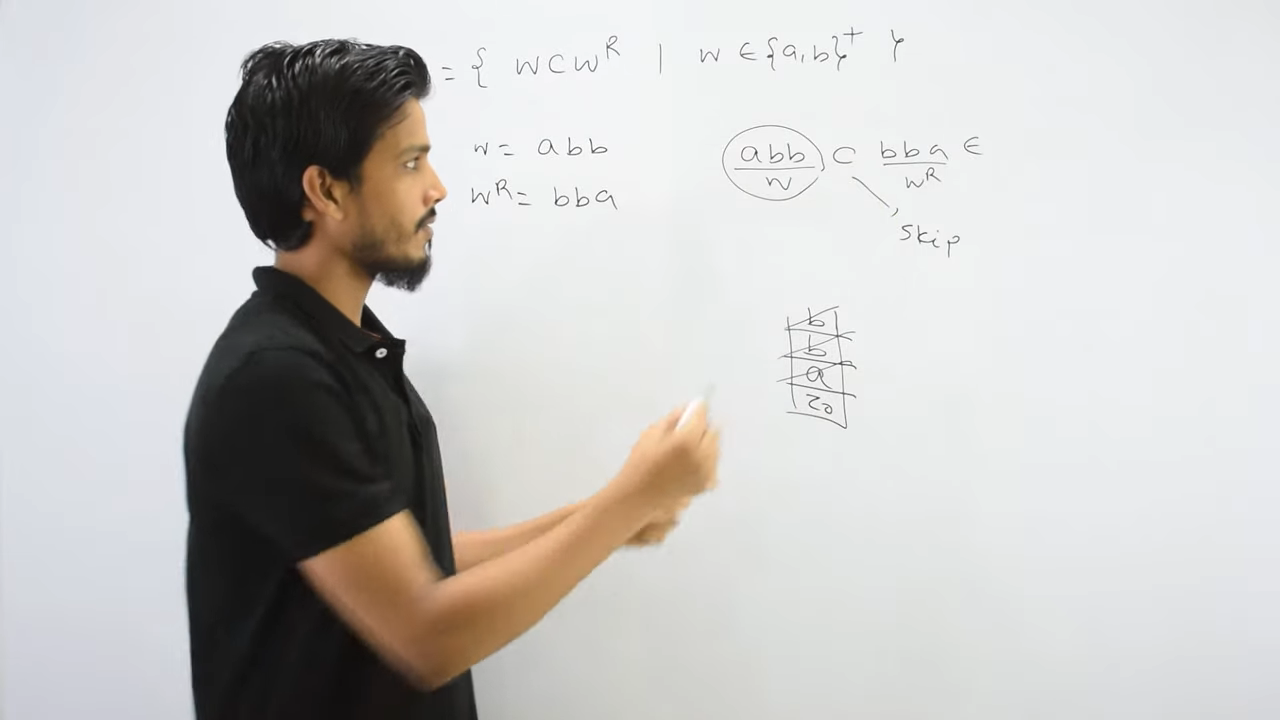 = { w c w^R | w ∈ {a,b}^+ }
w = abb
w^R = bba
abb c bba ∈
w w^R
skip
b
b
a
z0